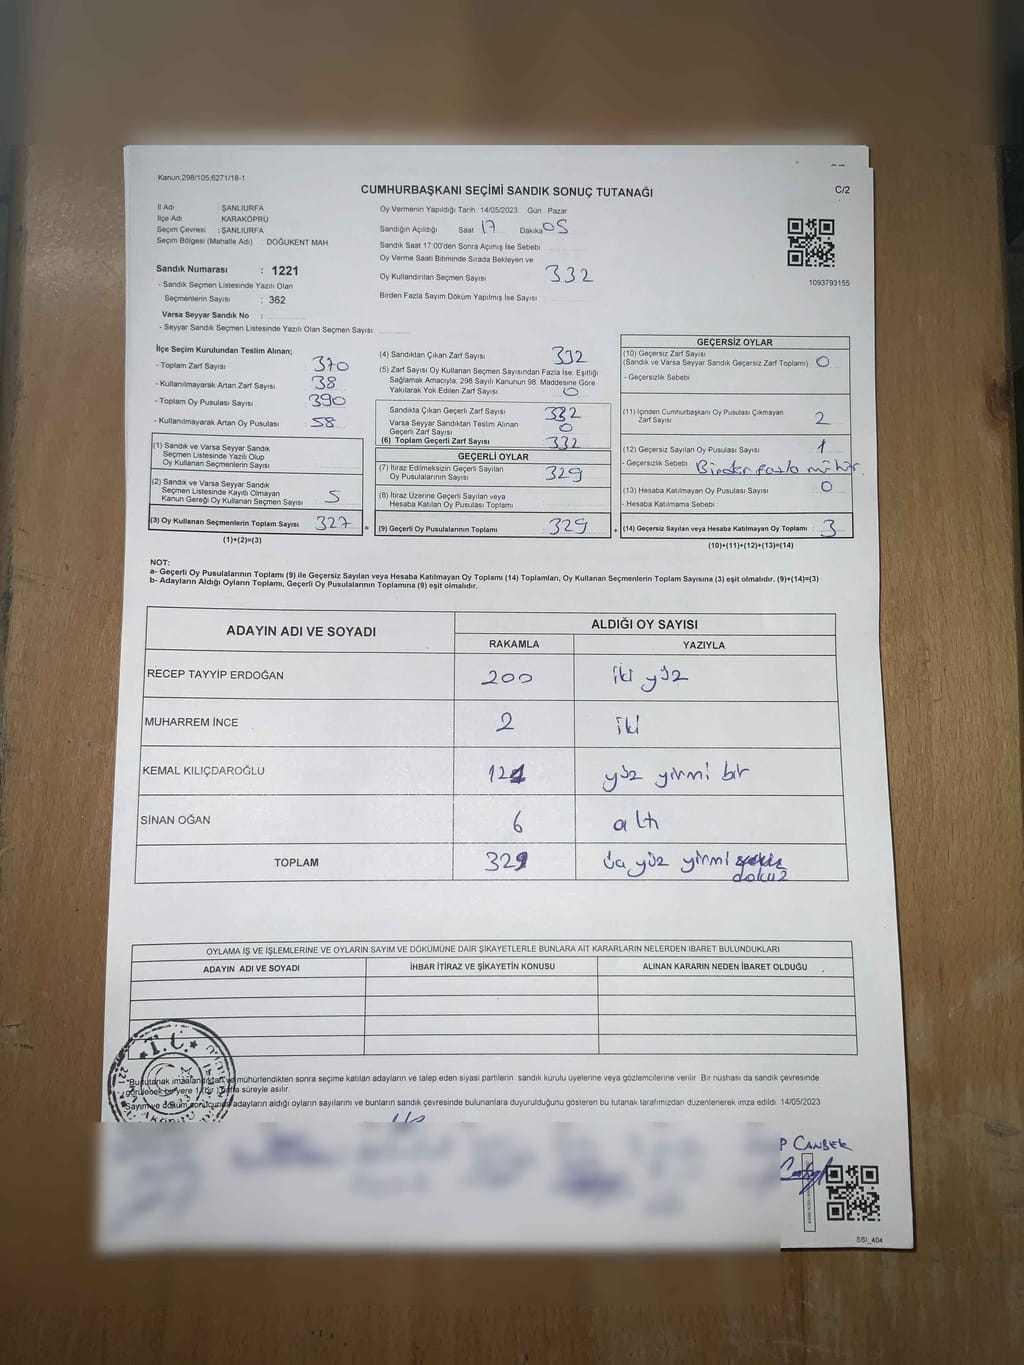 Kanun:298/105,6271/18-1
CUMHURBAŞKANI SEÇİMİ SANDIK SONUÇ TUTANAĞI
C/2
İl Adı ŞANLIURFA
İlçe Adı KARAKÖPRÜ
Seçim Çevresi : ŞANLIURFA
Seçim Bölgesi (Mahalle Adı) : DOĞUKENT MAH
Sandık Numarası : 1221
- Sandık Seçmen Listesinde Yazılı Olan
Seçmenlerin Sayısı : 362
Varsa Seyyar Sandık No :
- Seyyar Sandık Seçmen Listesinde Yazılı Olan Seçmen Sayısı:
Oy Vermenin Yapıldığı Tarih :14/05/2023 Gün Pazar
Sandığın Açıldığı Saat 17 Dakika 05
Sandık Saat 17:00'den Sonra Açımış İse Sebebi
Oy Verme Saati Bitiminde Sırada Bekleyen ve
Oy Kullandırılan Seçmen Sayısı 332
Birden Fazla Sayım Döküm Yapılmış İse Sayısı
1093793155
İlçe Seçim Kurulundan Teslim Alınan;
- Toplam Zarf Sayısı 370
- Kullanılmayarak Artan Zarf Sayısı 38
- Toplam Oy Pusulası Sayısı 390
- Kullanılmayarak Artan Oy Pusulası 58
(1) Sandık ve Varsa Seyyar Sandık
Seçmen Listesinde Yazılı Olup
Oy Kullanan Seçmenlerin Sayısı
(2) Sandık ve Varsa Seyyar Sandık
Seçmen Listesinde Kayıtlı Olmayan
Kanun Gereği Oy Kullanan Seçmen Sayısı 5
(3) Oy Kullanan Seçmenlerin Toplam Sayısı 327 =
(1)+(2)=(3)
(4) Sandıktan Çıkan Zarf Sayısı 332
(5) Zarf Sayısı Oy Kullanan Seçmen Sayısından Fazla İse, Eşitliği
Sağlamak Amacıyla; 298 Sayılı Kanunun 98. Maddesine Göre
Yakılarak Yok Edilen Zarf Sayısı 0
Sandıkta Çıkan Geçerli Zarf Sayısı 332
Varsa Seyyar Sandıktan Teslim Alınan
Geçerli Zarf Sayısı 0
(6) Toplam Geçerli Zarf Sayısı 332
GEÇERLİ OYLAR
(7) İtiraz Edilmeksizin Geçerli Sayılan
Oy Pusulalarının Sayısı 329
(8) İtiraz Üzerine Geçerli Sayılan veya
Hesaba Katılan Oy Pusulası Toplamı
(9) Geçerli Oy Pusulalarının Toplamı 329 +
GEÇERSİZ OYLAR
(10) Geçersiz Zarf Sayısı
(Sandık ve Varsa Seyyar Sandık Geçersiz Zarf Toplamı) 0
- Geçersizlik Sebebi
(11) İçinden Cumhurbaşkanı Oy Pusulası Çıkmayan
Zarf Sayısı 2
(12) Geçersiz Sayılan Oy Pusulası Sayısı 1
- Geçersizlik Sebebi Birden fazla mühür.
(13) Hesaba Katılmayan Oy Pusulası Sayısı 0
- Hesaba Katılmama Sebebi
(14) Geçersiz Sayılan veya Hesaba Katılmayan Oy Toplamı 3
(10)+(11)+(12)+(13)=(14)
NOT:
a- Geçerli Oy Pusulalarının Toplamı (9) ile Geçersiz Sayılan veya Hesaba Katılmayan Oy Toplamı (14) Toplamları, Oy Kullanan Seçmenlerin Toplam Sayısına (3) eşit olmalıdır. (9)+(14)=(3)
b- Adayların Aldığı Oyların Toplamı, Geçerli Oy Pusulalarının Toplamına (9) eşit olmalıdır.
ADAYIN ADI VE SOYADI
ALDIĞI OY SAYISI
RAKAMLA YAZIYLA
RECEP TAYYİP ERDOĞAN 200 iki yüz
MUHARREM İNCE 2 iki
KEMAL KILIÇDAROĞLU 121 yüz yirmi bir
SİNAN OĞAN 6 altı
TOPLAM 329 üç yüz yirmi sekiz
dokuz
OYLAMA İŞ VE İŞLEMLERİNE VE OYLARIN SAYIM VE DÖKÜMÜNE DAİR ŞİKAYETLERLE BUNLARA AİT KARARLARIN NELERDEN İBARET BULUNDUKLARI
ADAYIN ADI VE SOYADI İHBAR İTİRAZ VE ŞİKAYETİN KONUSU ALINAN KARARIN NEDEN İBARET OLDUĞU
T.C.
*Bu tutanak imzalandıktan ve mühürlendikten sonra seçime katılan adayların ve talep eden siyasi partilerin sandık kurulu üyelerine veya gözlemcilerine verilir. Bir nüshası da sandık çevresinde
görülecek bir yere 1 bir hafta süreyle asılır.
*Sayım ve döküm sonucunda adayların aldığı oyların sayılarını ve bunların sandık çevresinde bulunanlara duyurulduğunu gösteren bu tutanak tarafımızdan düzenlenerek imza edildi. 14/05/2023
P CANBEK
SSI_404